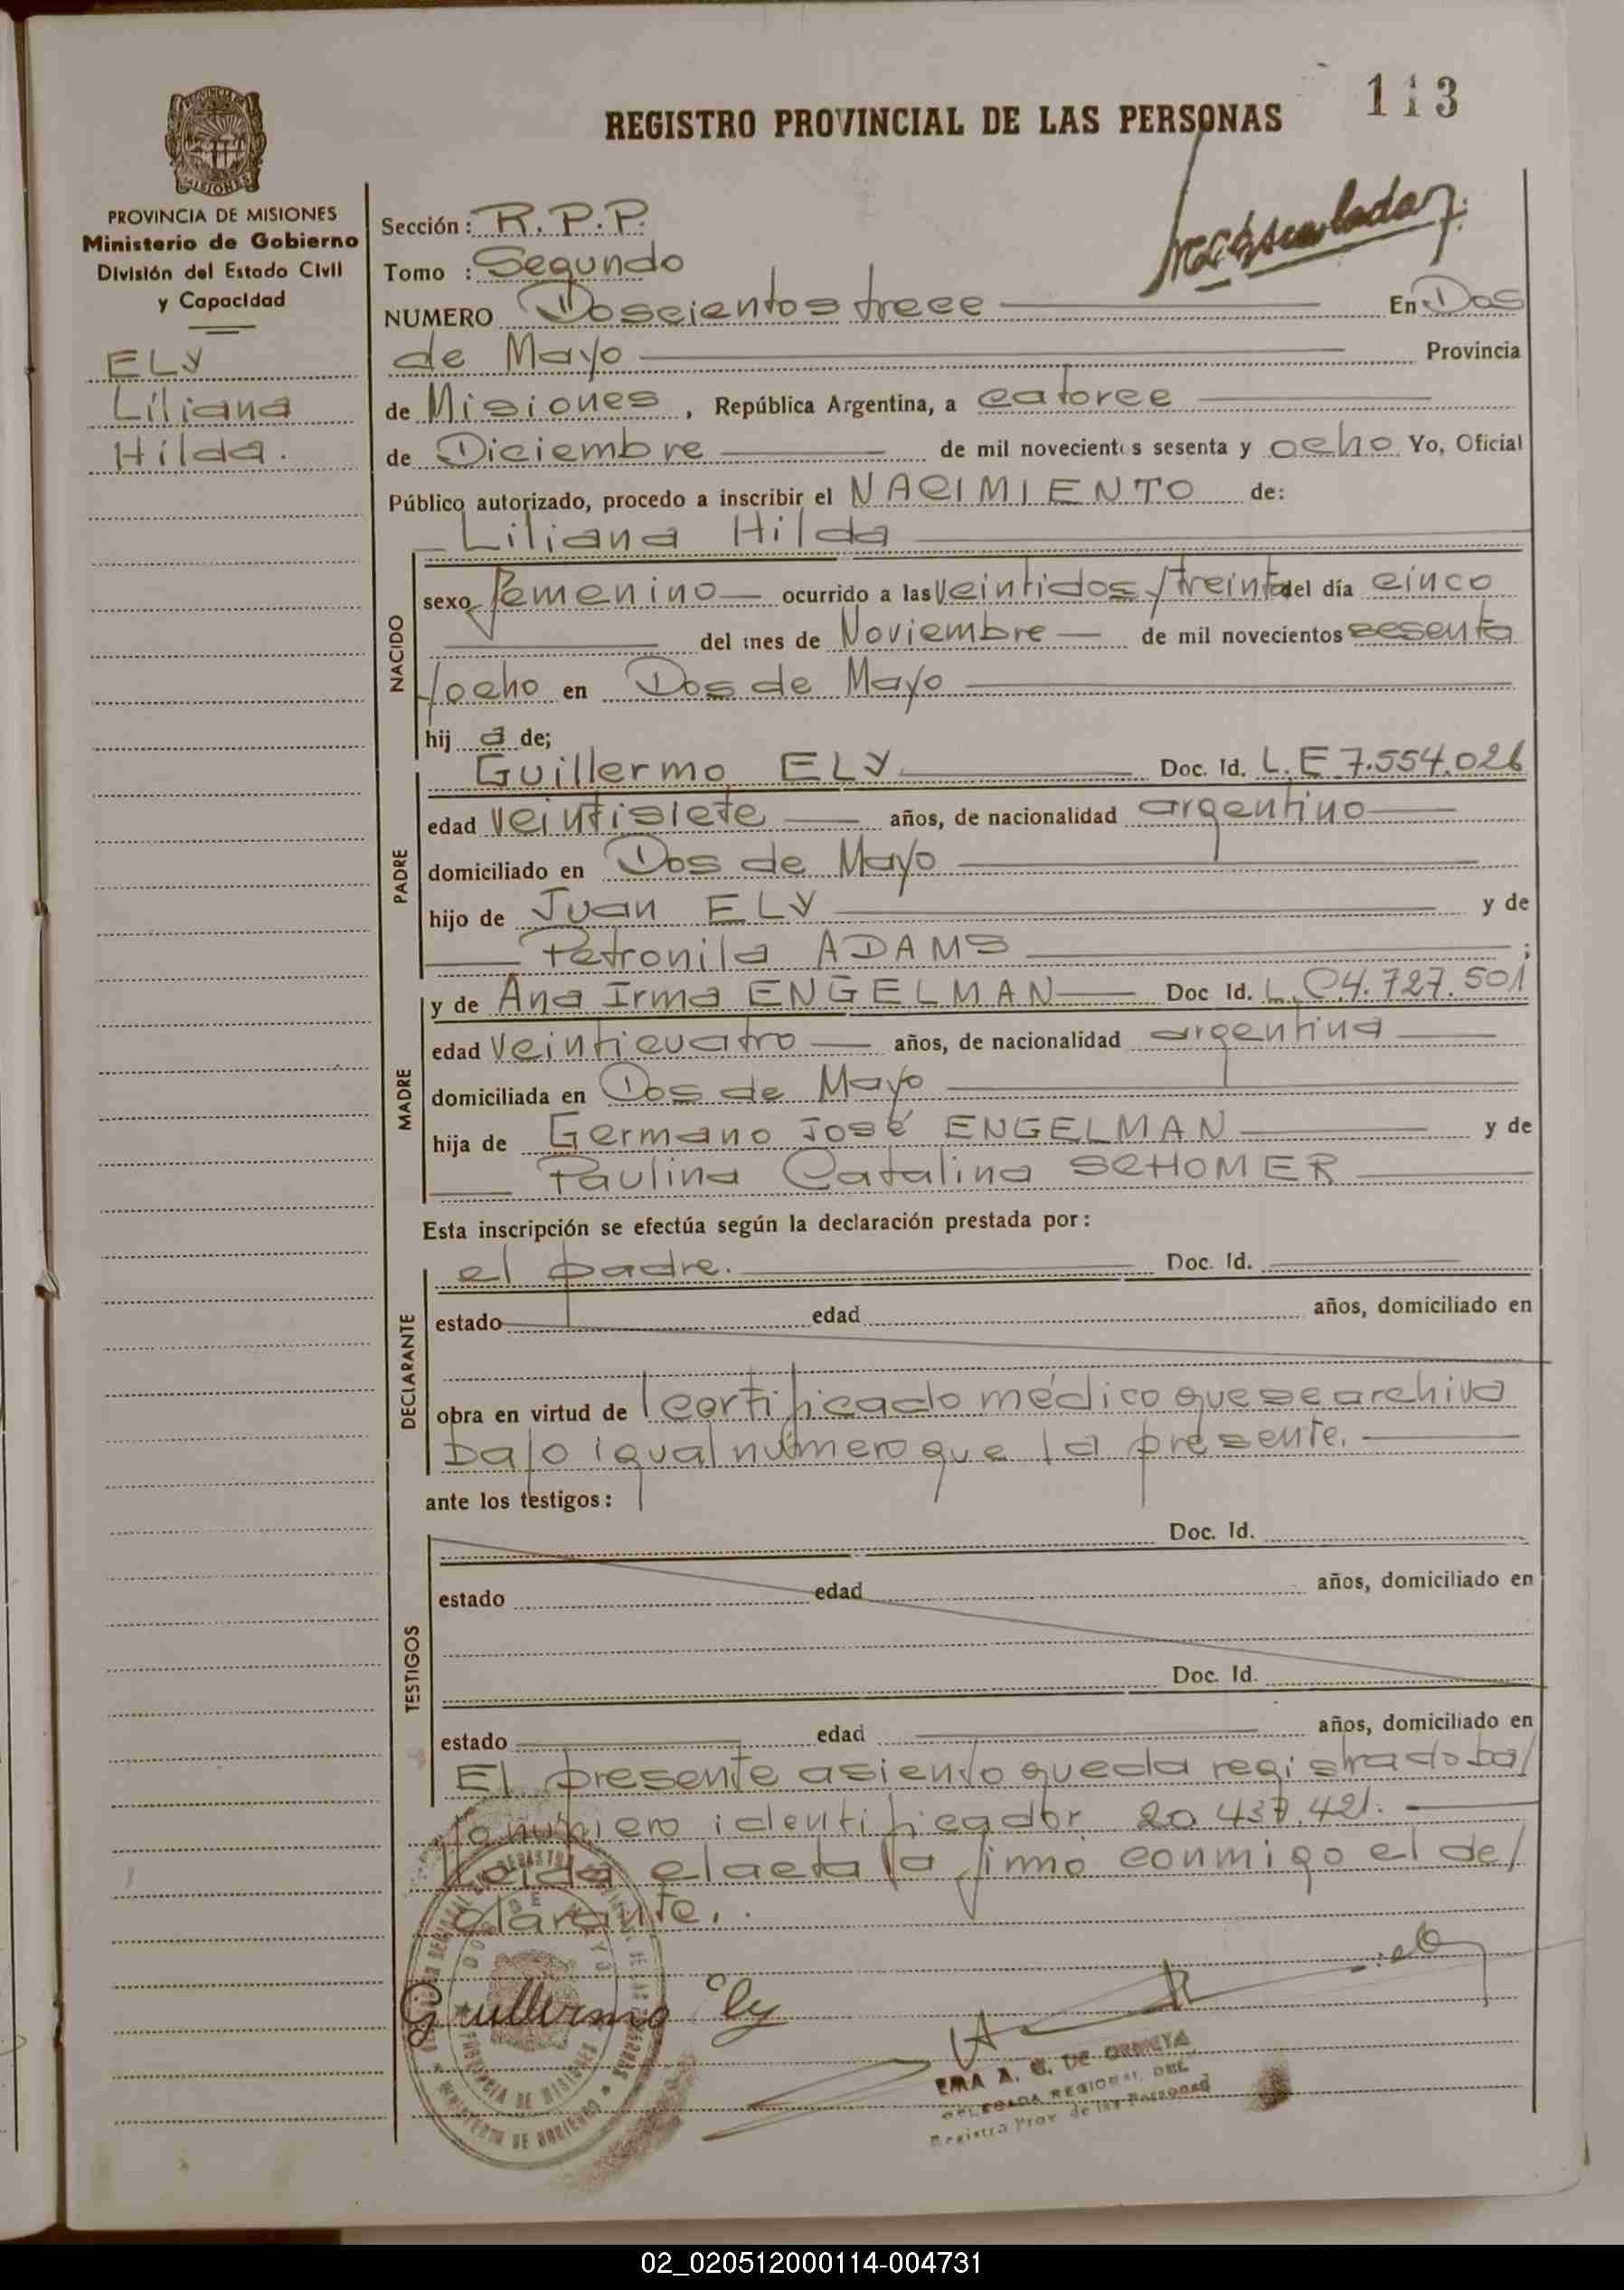 113
REGISTRO PROVINCIAL DE LAS PERSONAS
PROVINCIA DE MISIONES
Ministerio de Gobierno
División del Estado Civil
y Capacidad
ELY
Liliana
Hilda.
Sección: R.P.P.
Tomo : Segundo
NUMERO Doscientos trece En Dos
de Mayo Provincia
de Misiones, República Argentina, a catorce
de Diciembre de mil novecientos sesenta y ocho Yo, Oficial
Público autorizado, procedo a inscribir el NACIMIENTO de:
Liliana Hilda
NACIDO
sexo femenino ocurrido a las veintidos/treinta del día cinco
del mes de Noviembre de mil novecientos sesenta
/ocho en Dos de Mayo
hij a de;
PADRE
Guillermo ELY Doc. Id. L.E 7.554.026
edad veintisiete años, de nacionalidad argentino
domiciliado en Dos de Mayo
hijo de Juan ELY y de
Petronila ADAMS ;
MADRE
y de Ana Irma ENGELMAN Doc Id. L.C 4.727.501
edad veinticuatro años, de nacionalidad argentina
domiciliada en Dos de Mayo
hija de Germano José ENGELMAN y de
Paulina Catalina SCHOMER
Esta inscripción se efectúa según la declaración prestada por:
DECLARANTE
el padre. Doc. Id.
estado edad años, domiciliado en
obra en virtud de certificado médico que se archiva
bajo igual número que la presente.
ante los testigos:
TESTIGOS
Doc. Id.
estado edad años, domiciliado en
Doc. Id.
estado edad años, domiciliado en
El presente asiento queda registrado ba/
jo número identificador 20.437.421.
Leida el acta la firmó conmigo el de/
clarante.
Guillermo Ely
EMA A. G. DE
DELEGADA REGIONAL DEL
Registro Prov. de las Personas
DOS DE MAYO
PROVINCIA DE MISIONES
MINISTERIO DE GOBIERNO
02_020512000114-004731